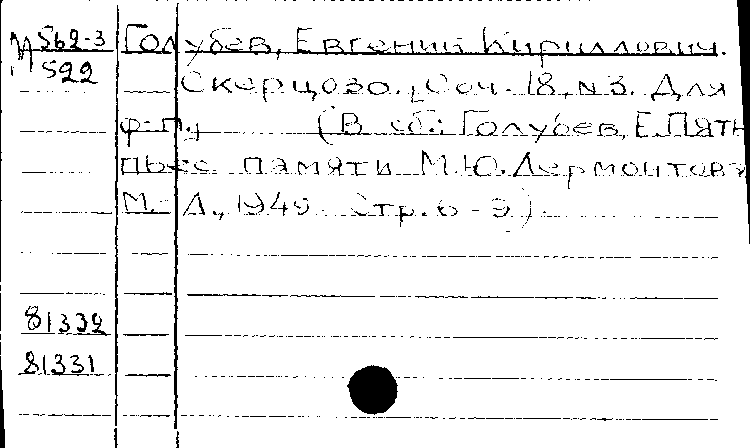 М 562-3 Голубев, Евгений Кириллович.
522 Скерцозо. Соч. 18, №3. Для
ф-п., (В сб.: Голубев, Е. Пять
пьес памяти М.Ю. Лермонтова
М.-Л., 1945. Стр. 6-9).
81332
81331